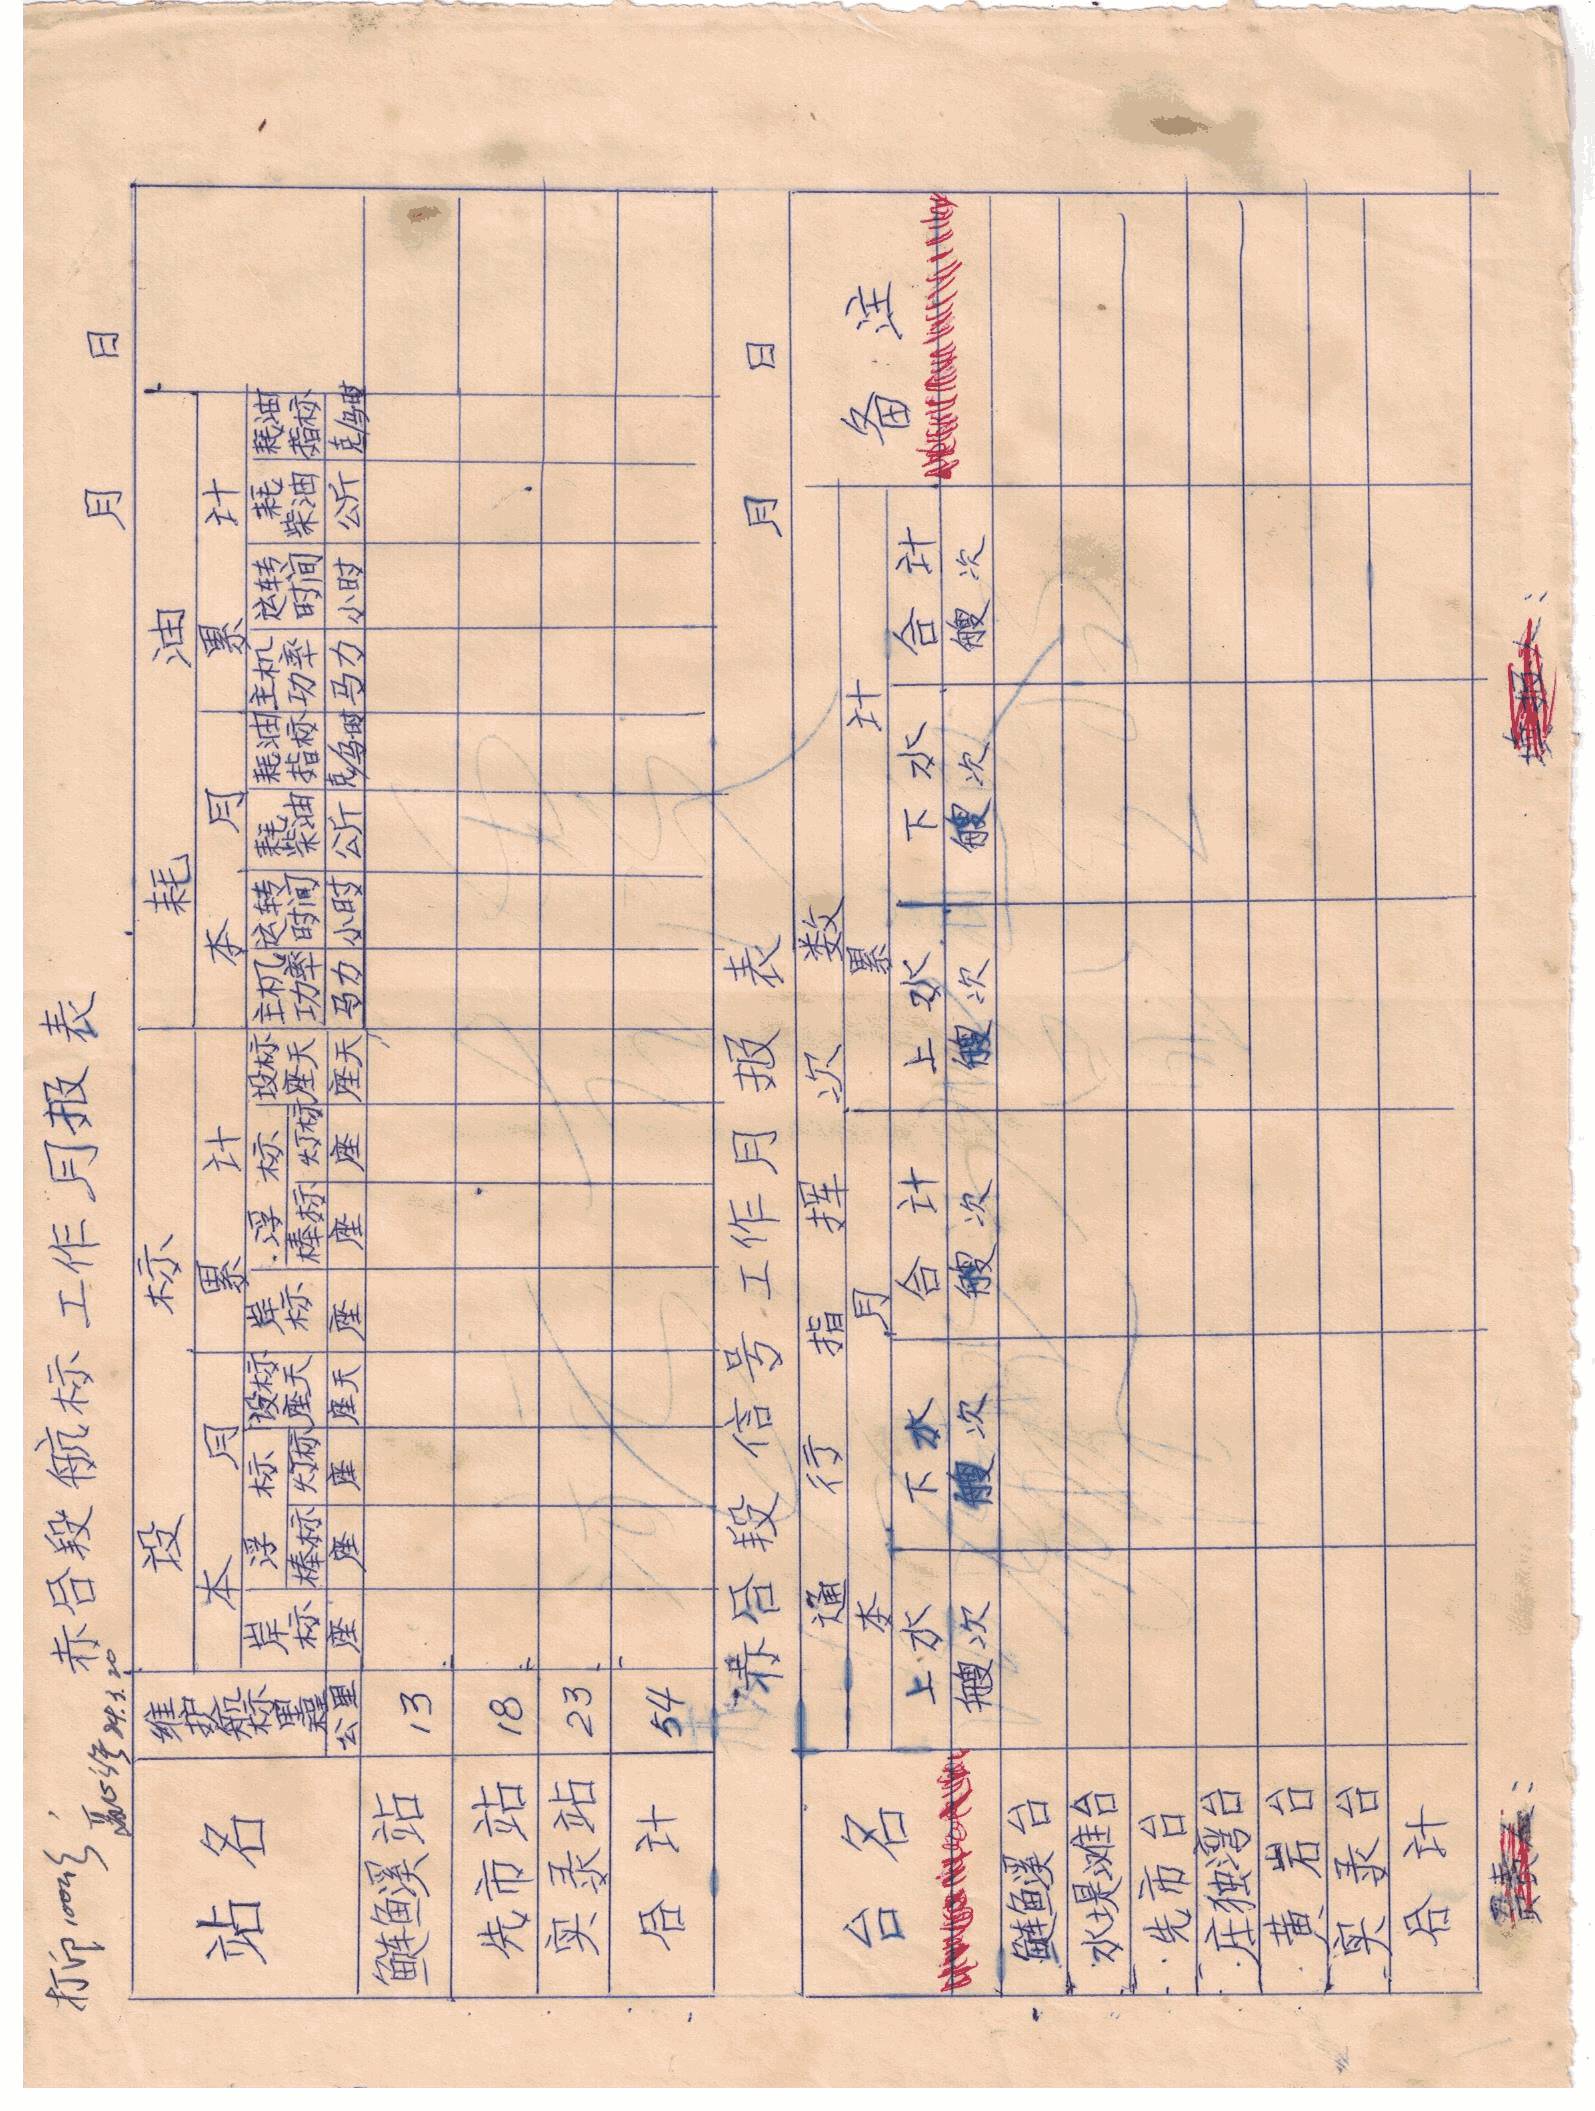 打印100份
84.3.20
赤合段航标工作月报表 月 日
站名 维护航标里程 设标 耗油
本月 累计 本月 累计
岸标 浮标 设标座天 岸标 浮标 设标座天 主机功率 运转时间 耗柴油 耗油指标 主机功率 运转时间 耗柴油 耗油指标
棒标 灯标 棒标 灯标
公里 座 座 座 座天 座 座 座 座天 马力 小时 公斤 克/马时 马力 小时 公斤 克/马时
鲢鱼溪站 13
先市站 18
实录站 23
合计 54
赤合段信号工作月报表 月 日
台名 通行指挥次数 备注
本月 累计
上水 下水 合计 上水 下水 合计
艘次 艘次 艘次 艘次 艘次 艘次
鲢鱼溪台
水堤滩台
先市台
庄独湾台
黄岩台
实录台
合计